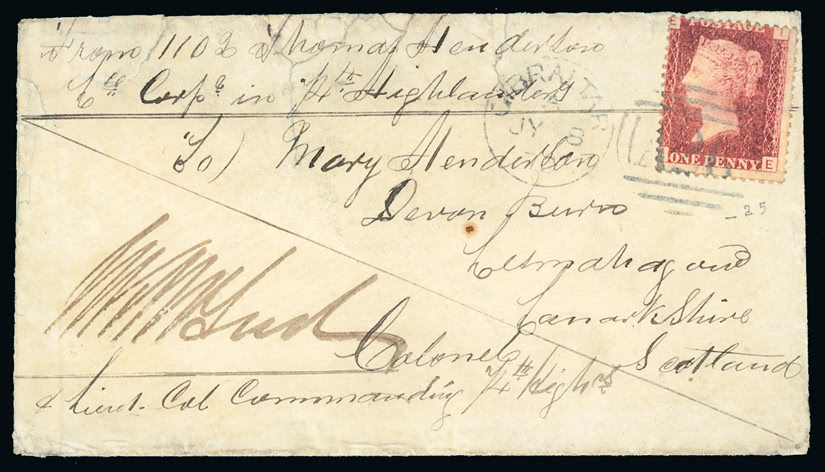 From 1102 Thomas Henderson
Corpl in 74th Highlanders
To) Mary Henderson
Devon Burn
Lesmahagow
Lanarkshire
Scotland
Colonel
& Lieut. Col Commanding 74th Highrs
GIBRALTAR
JY 8
ONE PENNY
E
25